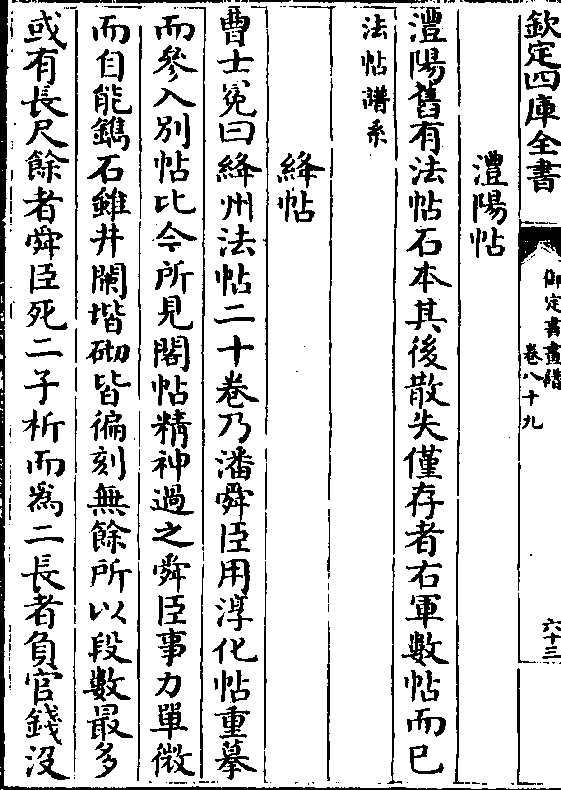 欽定四庫全書
御定書畫譜
卷八十九
六十三
澧陽帖
澧陽舊有法帖石本其後散失僅存者右軍數帖而已
法帖譜系
絳帖
曹士冕曰絳州法帖二十卷乃潘舜臣用淳化帖重摹
而參入別帖比今所見閣帖精神過之舜臣事力單微
而自能鐫石雖井闌堦砌皆徧刻無餘所以段數最多
或有長尺餘者舜臣死二子析而爲二長者負官錢沒